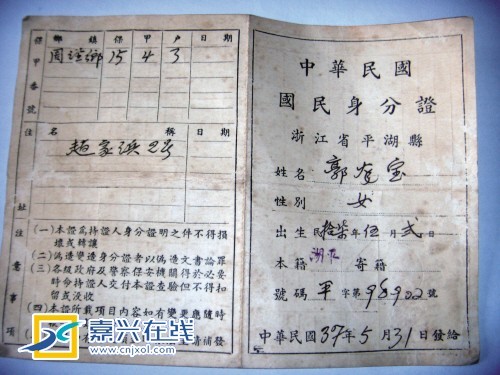 保甲番號
鄉鎮 保 甲 戶 日期
15 4 3
住
名稱 日期
趙家浜 28
址
注意事項
(一)本證爲持證人身分證明之件不得損
壞或轉讓
(二)偽造變造身分證者以偽造文書論罪
(三)各級政府及警察保安機關得於必要
時令持證人交付本證查驗但不得扣
留或沒收
(四)本證所載項目內容如有變更應隨時
請補發
嘉兴在线
www.cnjxol.com
中華民國
國民身分證
浙江省平湖縣
姓名 郭 宝
性別 女
出生民拾柒年伍月貳日
本籍 寄籍
號碼 平 字第98922號
中華民國37年5月31日發給